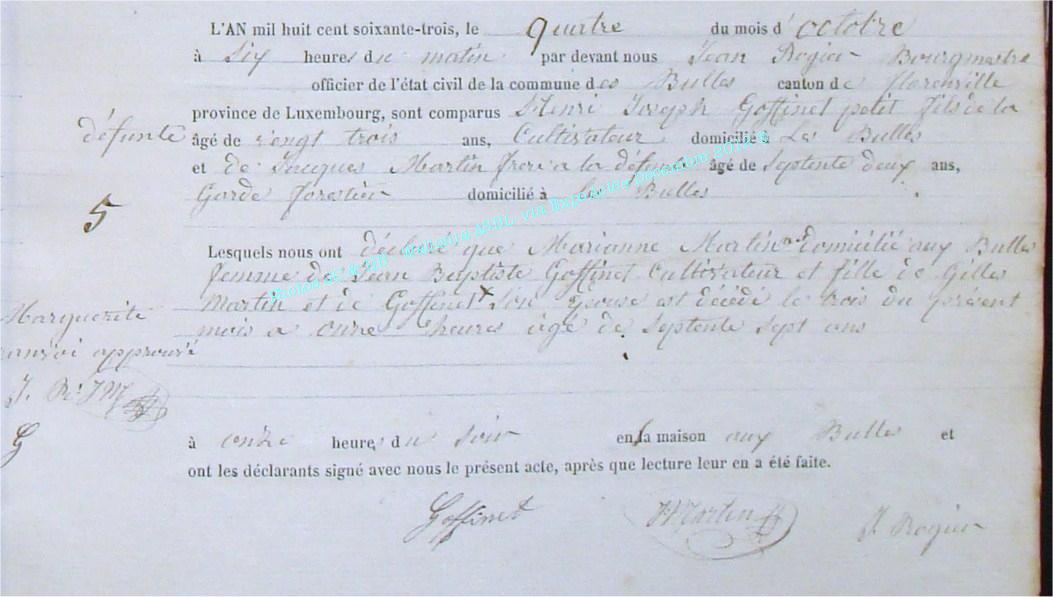 L'AN mil huit cent soixante-trois, le quatre du mois d'octobre
à Six heures du matin par devant nous Jean Rogier Bourgmestre
officier de l'état civil de la commune des Bulles canton de florenville
province de Luxembourg, sont comparus Henri Joseph Goffinet petit fils de la
défunte âgé de vingt trois ans, Cultivateur domicilié à Les Bulles
et de Jacques Martin frere a la défunte âgé de Septente deux ans,
Garde forestier domicilié à Les Bulles
5
Lesquels nous ont déclaré que Marianne Martin domicilié aux Bulles
femme de Jean Baptiste Goffinet Cultivateur et fille de Gilles
Martin et de Goffinet Son Epouse est décédé le trois du présent
Marguerite
mois a onze heures âgé de Septente Sept ans
renvoi approuvé
J. R. JM
G
à onze heures du Soir en la maison aux Bulles et
ont les déclarants signé avec nous le présent acte, après que lecture leur en a été faite.
Goffinet JMartin J. Rogier